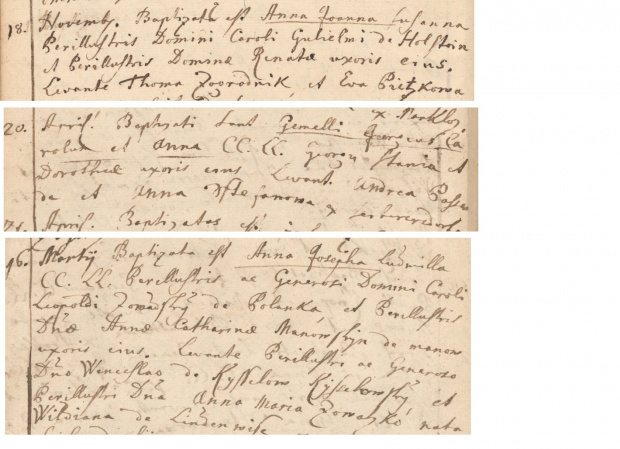 18. Novemb. Baptizata est Anna Joanna Susanna
Perillustris Domini Caroli Gulielmi de Holstein
et Perillustris Dominæ Renatæ uxoris eius.
Levante Thoma Zogrodnik, et Eva Pietzkowa
ex Marklo
20. April. Baptizati sunt Gemelli Ca
rolus et Anna CC. LL. Stania et
Dorotheæ uxoris eius Levant. Andrea
de et Anna Stefanowa ex
April. Baptizatus est
16. Martij Baptizata est Anna Josepha Ludmilla
CC. LL. Perillustris ac Generosi Domini Caroli
Leopoldi de Polanka et Perillustris
Dnæ Annæ Catharinæ de manow
uxoris eius. Levante Perillustri ac Generoso
Dno Wenceslao de Kysselow Kysselowsky et
Perillustri Dna Anna Maria nata
de Lindenwise